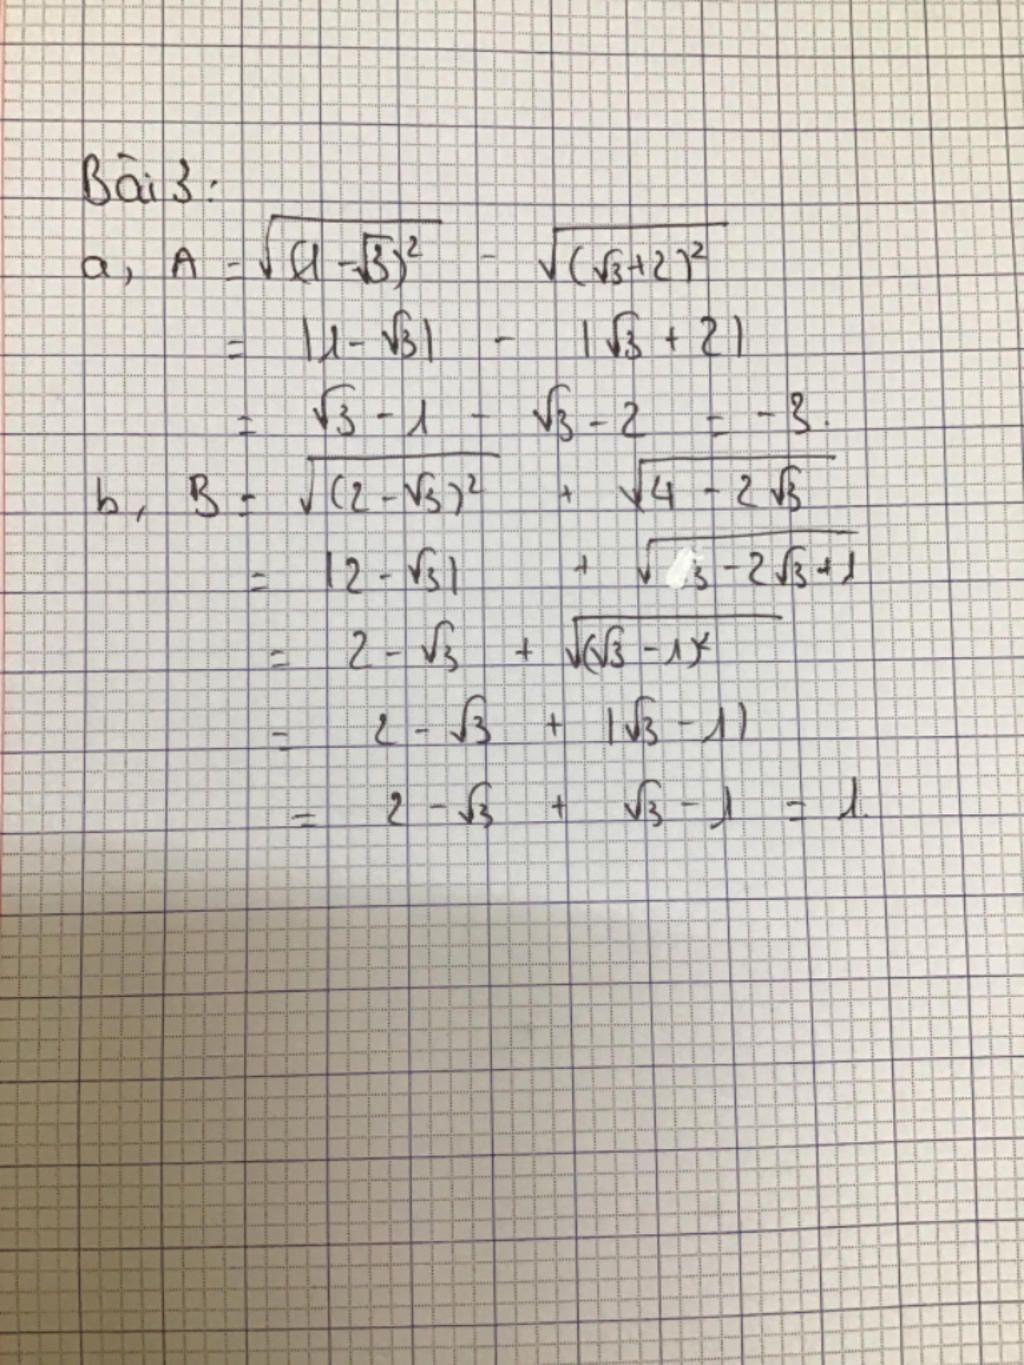 Bài 3:
a, A = √(1 - √3)² - √(√3 + 2)²
= |1 - √3| - |√3 + 2|
= √3 - 1 - √3 - 2 = -3.
b, B = √(2 - √3)² + √4 - 2√3
= |2 - √3| + √3 - 2√3 + 1
= 2 - √3 + √(√3 - 1)²
= 2 - √3 + |√3 - 1|
= 2 - √3 + √3 - 1 = 1.